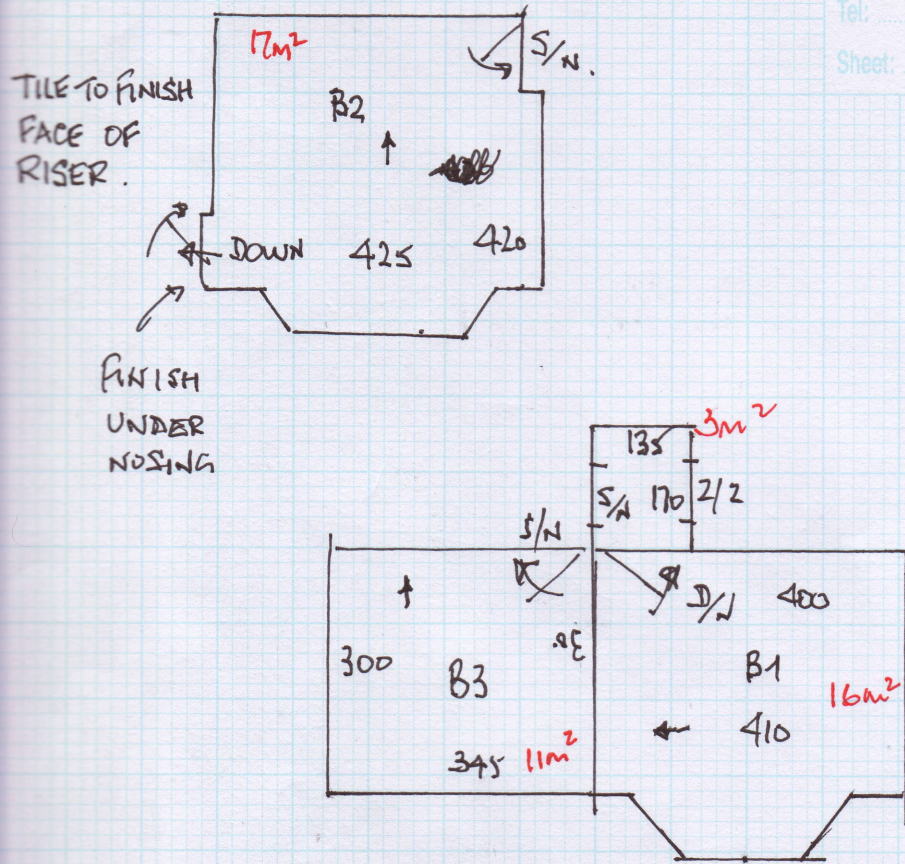 Tel:
Sheet:
17m²
S/N.
TILE TO FINISH
FACE OF
RISER.
B2
DOWN
425
420
FINISH
UNDER
NOSING
3m²
135
S/N
170
2/2
S/N
D/N
400
300
B3
B1
16m²
410
345
11m²